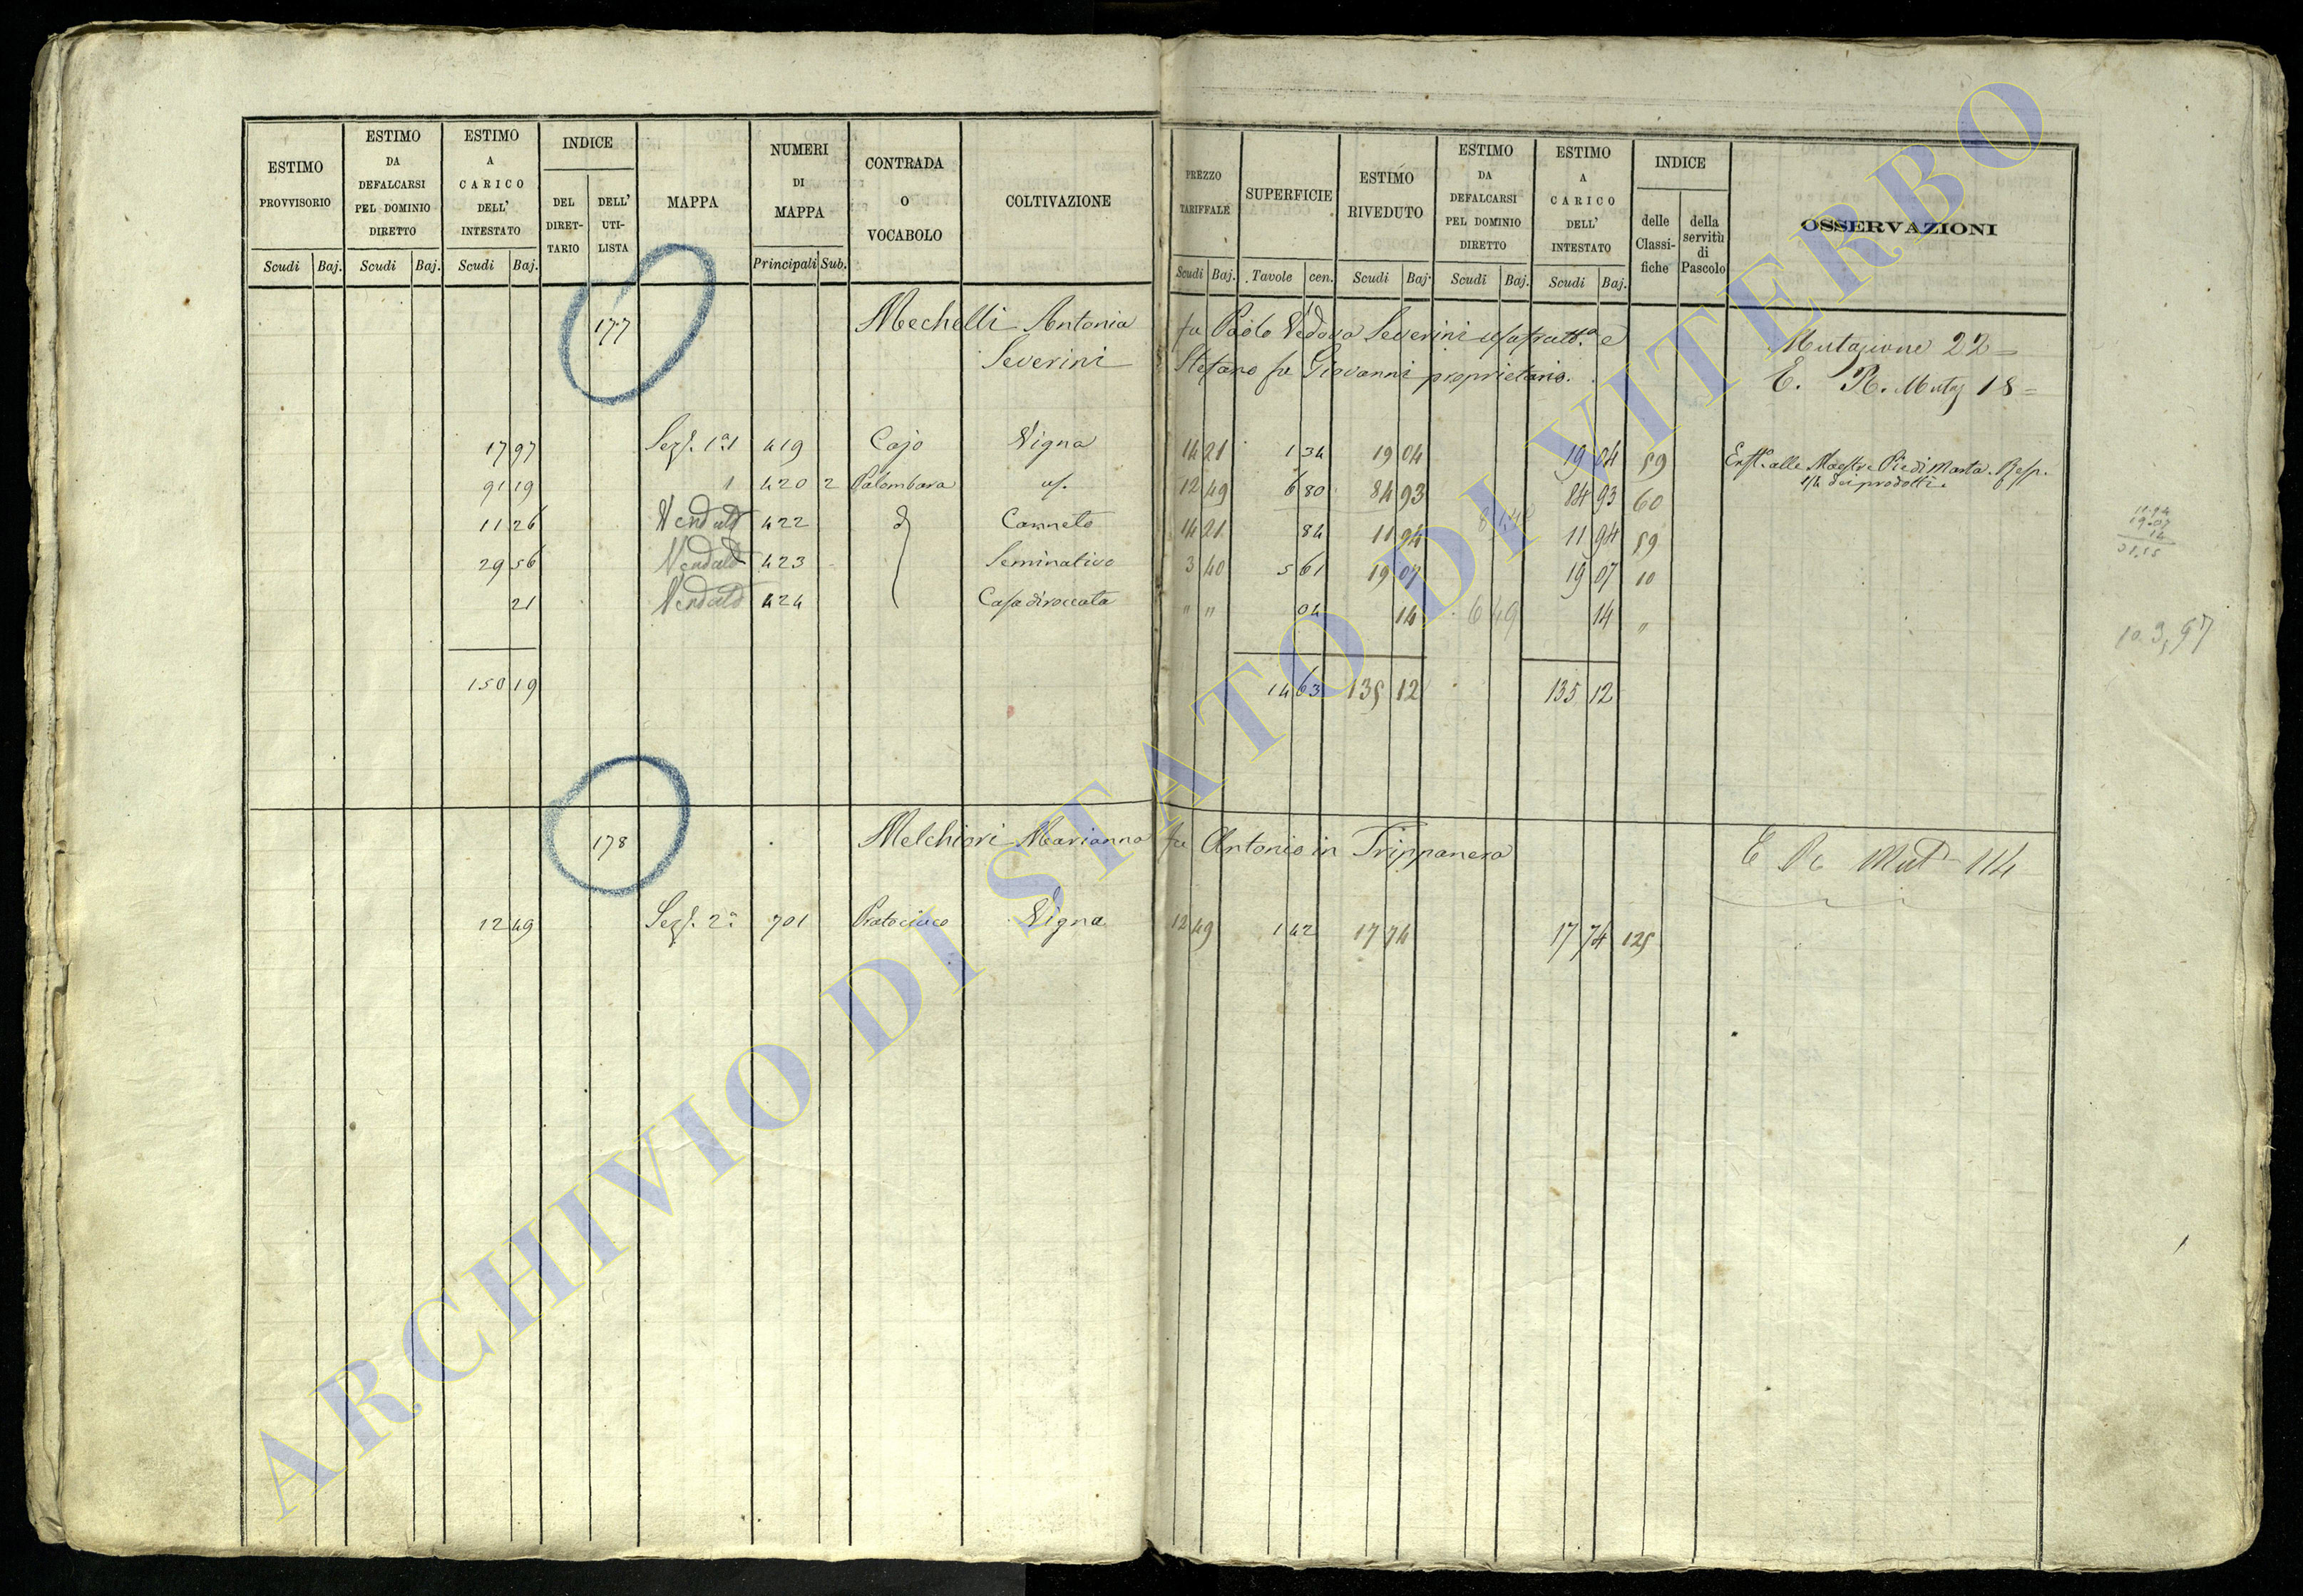 ESTIMO PROVVISORIO
ESTIMO DA DEFALCARSI PEL DOMINIO DIRETTO
ESTIMO A CARICO DELL' INTESTATO
INDICE
DEL DIRET-TARIO
DELL' UTI-LISTA
MAPPA
NUMERI DI MAPPA
CONTRADA O VOCABOLO
COLTIVAZIONE
PREZZO TARIFFALE
SUPERFICIE
ESTIMO RIVEDUTO
ESTIMO DA DEFALCARSI PEL DOMINIO DIRETTO
ESTIMO A CARICO DELL' INTESTATO
INDICE
delle Classi-fiche
della servitù di Pascolo
OSSERVAZIONI
Scudi Baj. Scudi Baj. Scudi Baj. Principali Sub. Scudi Baj. Tavole cen. Scudi Baj. Scudi Baj. Scudi Baj.
177 Mechelli Antonia fu Paolo Vedova Severini usufrutt.a e Mutazione 22 =
Severini Stefano fu Giovanni proprietario. E. R. Mutaz 18 =
17 97 Sez. 1a 1 419 Cajo Vigna 14 21 1 34 19 04 19 04 59
91 19 1 420 2 Palombara 12 49 6 80 84 93 84 93 60
1/4 dei prodotti.
11 26 Venduto 422 Canneto 14 21 84 11 94 11 94 59
29 56 Venduto 423 Seminativo 3 40 5 61 19 07 19 07 10
21 Venduto 424 Casa diroccata " " 04 14 6 49 14 "
150 19 14 63 135 12 135 12
11.94
19.07
14
31,15
10 3,97
178 Melchiori Marianna fu Antonio in Trippanera E R Mut 114
12 49 Sez. 2a 701 Vigna 12 49 1 42 17 74 17 74 125
ARCHIVIO DI STATO DI VITERBO